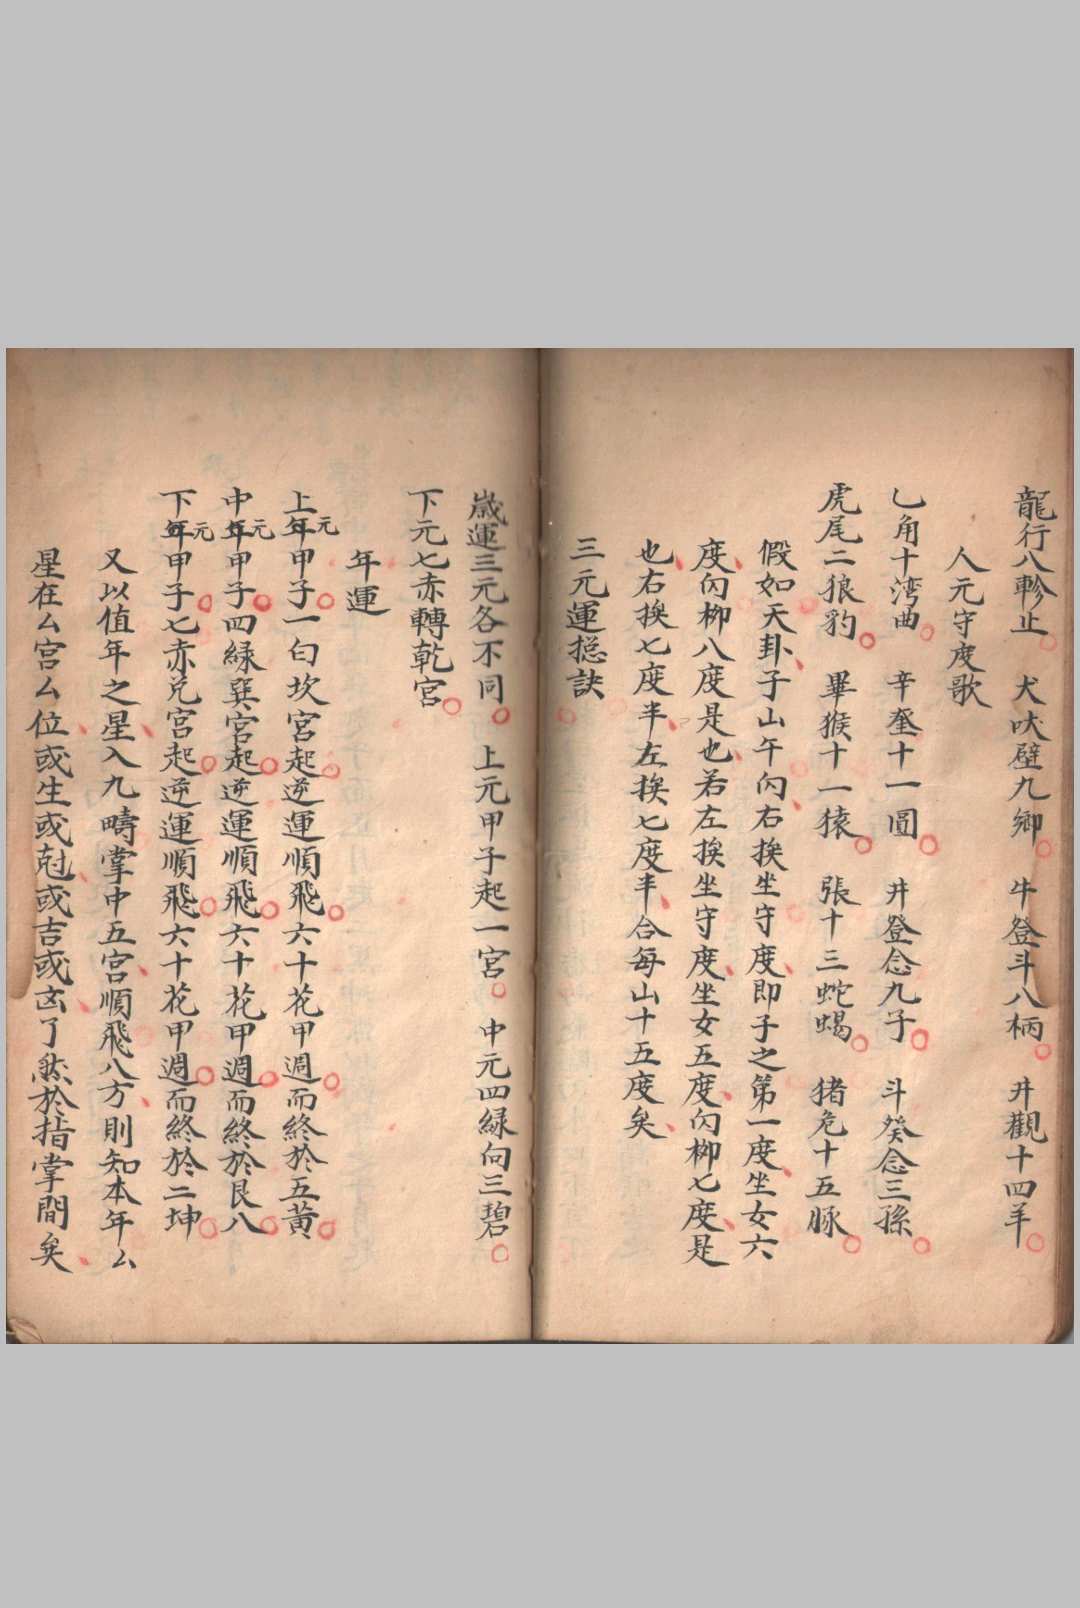 龍行八軫止 犬吠壁九鄉 牛登斗八柄 井觀十四羊
人元守度歌
乙角十湾曲 辛奎十一圓 井登念九子 斗癸念三孫
虎尾二狼豹 畢猴十一猿 張十三蛇蝎 猪危十五豚
假如天卦子山午向右挨坐守度即子之第一度坐女六
度向柳八度是也若左挨坐守度坐女五度向柳七度是
也右挨七度半左挨七度半合每山十五度矣
三元運捴訣
歲運三元各不同 上元甲子起一宮 中元四緑向三碧
下元七赤轉乾宮
年運
上元年甲子一白坎宮起逆運順飛六十花甲週而終於五黃
中元年甲子四緑巽宮起逆運順飛六十花甲週而終於艮八
下元年甲子七赤兌宮起逆運順飛六十花甲週而終於二坤
又以值年之星入九疇掌中五宮順飛八方則知本年厶
星在厶宮厶位或生或尅或吉或凶了然於指掌間矣